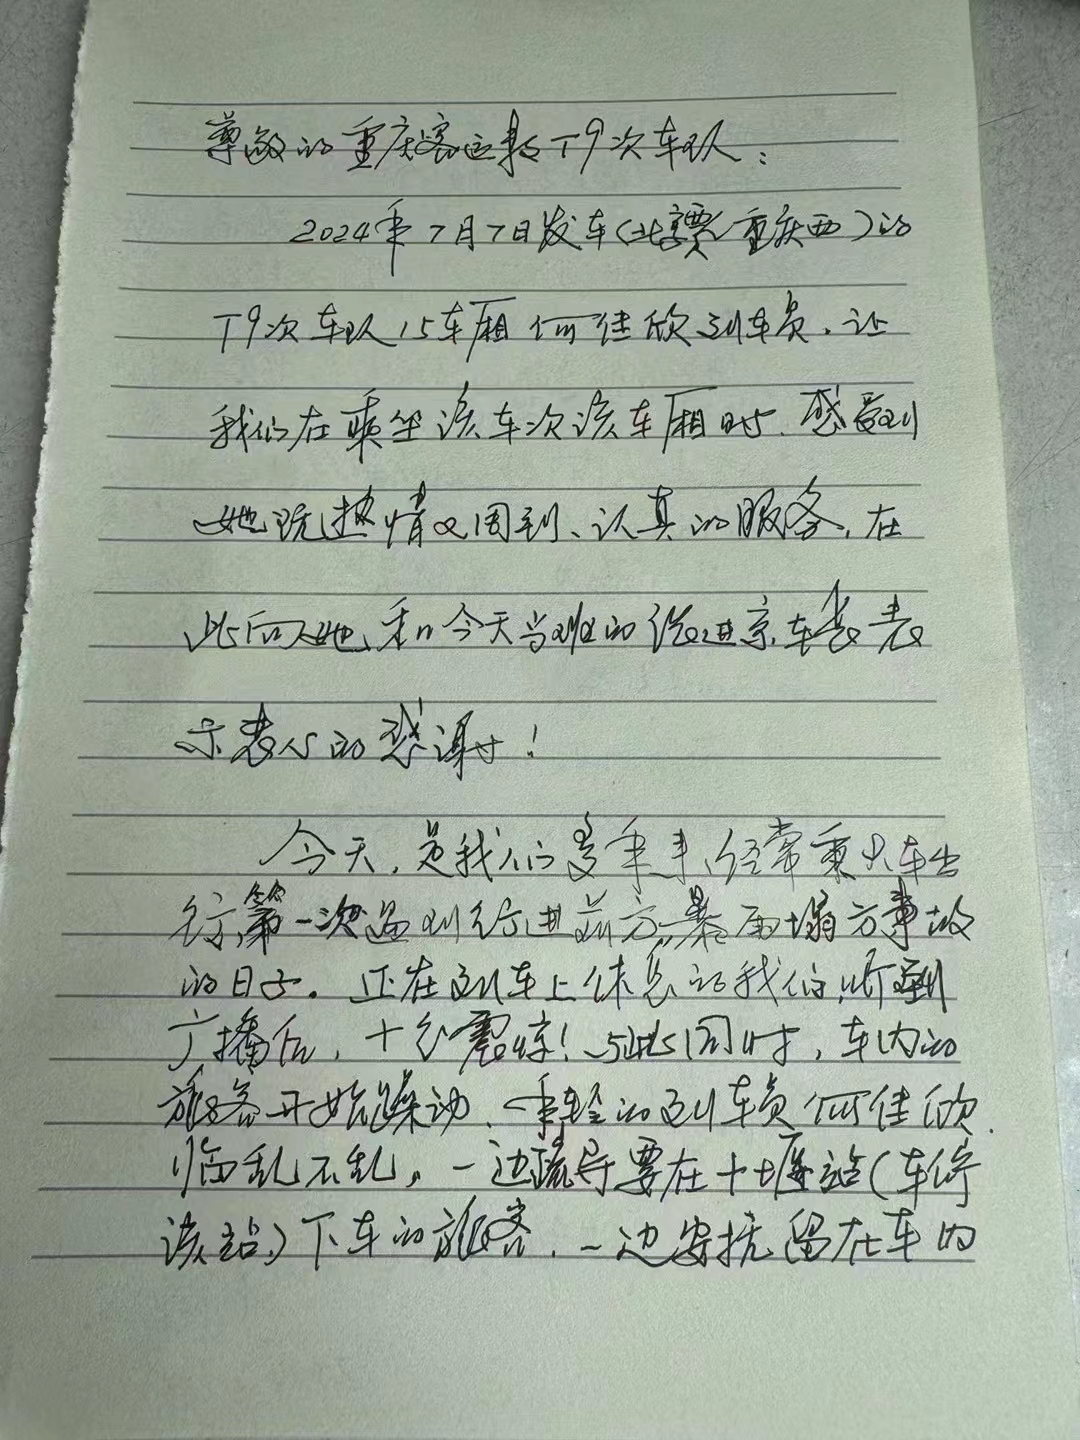 尊敬的重庆客运段T9次车队：
2024年7月7日发车(北京西/重庆西)的
T9次车队15车厢何佳欣列车员，让
我们在乘坐该车次该车厢时，感受到
她既热情又周到、认真的服务，在
此向她和今天当班的进京车长表
示衷心的感谢！
今天，是我们多年来，经常乘火车出
行，第一次遇到行进前方暴雨塌方事故
的日子。正在列车上休息的我们，听到
广播后，十分震惊！与此同时，车内的
旅客开始躁动、年轻的列车员何佳欣，
临乱不乱，一边疏导要在十堰站(车停
该站)下车的旅客，一边安抚留在车内